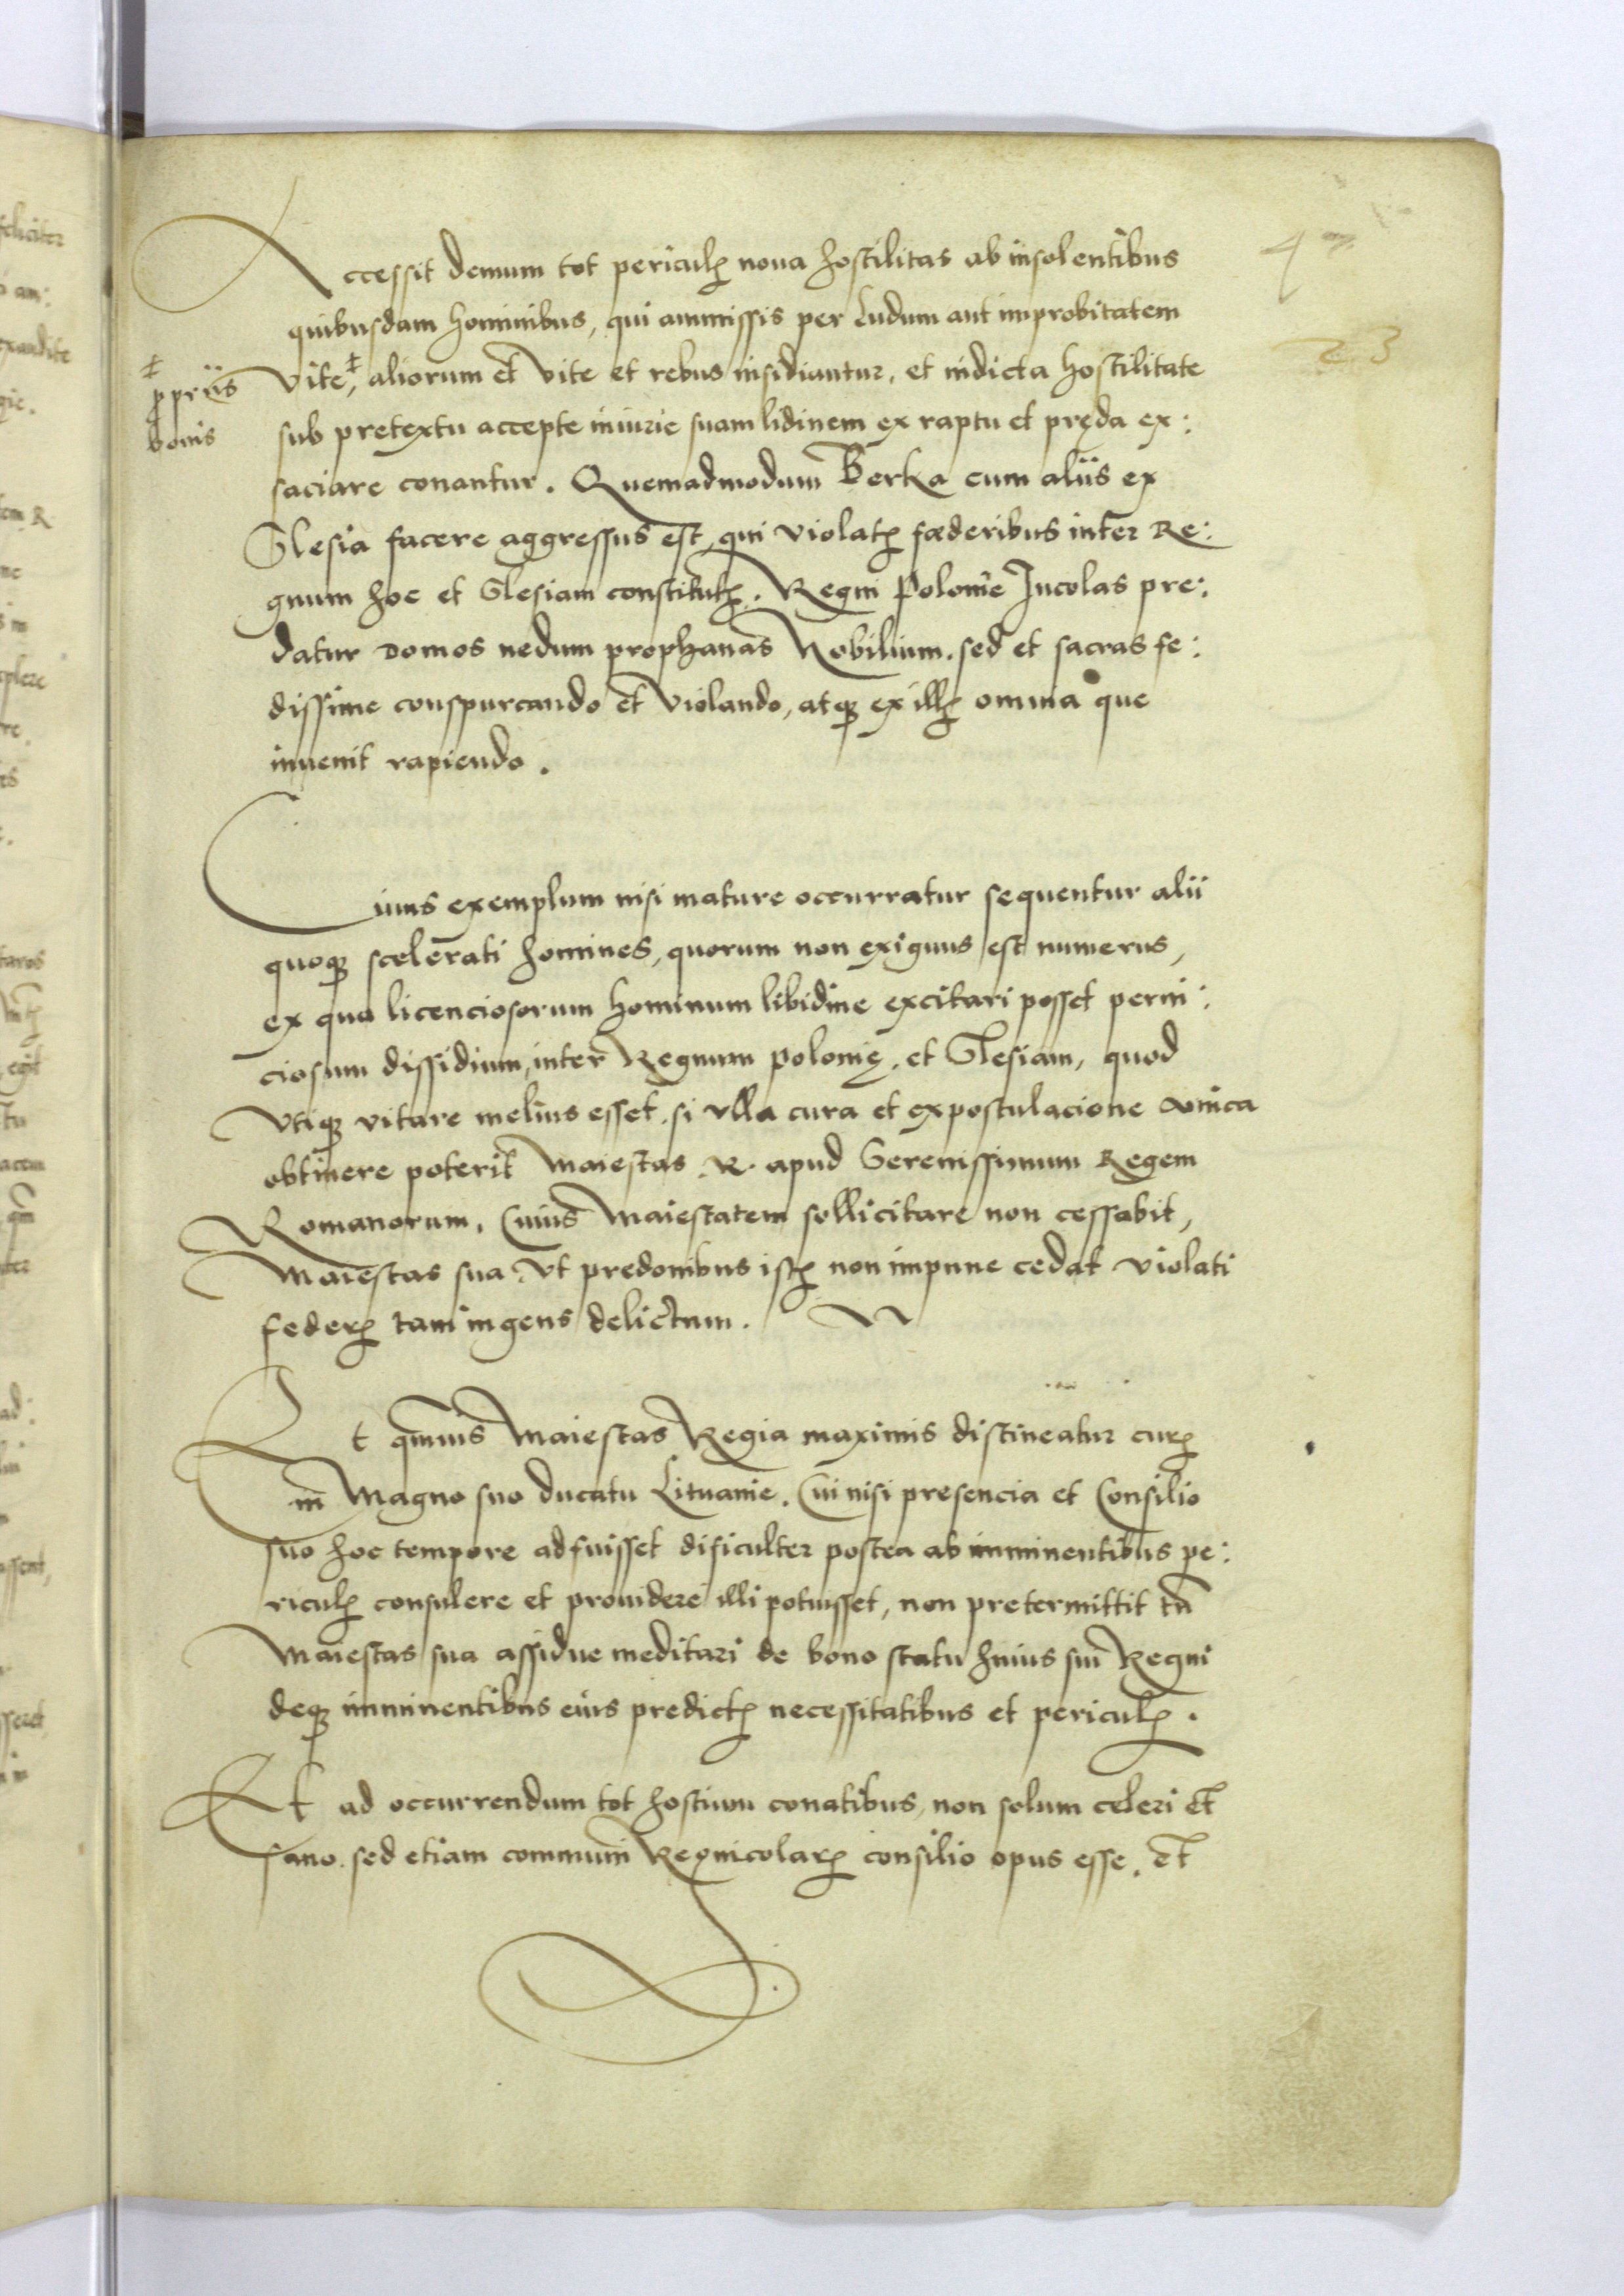 4
23
Accessit demum tot periculꝭ noua hostilitas ab insolentibus
quibusdam hominibus, qui ammissis per Ludum aut improbitatem
vite ‡, aliorum et vite et rebus insidiantur, et indicta hostilitate
‡
ꝓpriis
bonis
sub pretextu accepte iniurie suam lidinem ex raptu et pręda ex:
saciare conantur. Quemadmodum Berka cum aliis ex
Slesia facere aggressus est, qui violatꝭ fœderibus inter Re:
gnum hoc et Slesiam constitutꝭ. Regni Polonie Incolas pre:
datur Domos nedum prophanas Nobilium. sed et sacras fe:
dissime conspurcando et violando, atqꝫ ex illꝭ omnia que
inuenit rapiendo.
Cuius exemplum nisi mature occurratur sequentur alii
quoqꝫ scelerati homines, quorum non exiguus est numerus,
ex quo licenciosorum hominum libidine excitari posset perni:
ciosum dissidium, inter Regnum polonię. et Slesiam, quod
vtiqꝫ vitare melius esset. si vlla cura et expostulacione amica
obtinere poterit Maiestas. R. apud Serenissimum Regem
Romanorum. Cuius Maiestatem sollicitare non cessabit,
Maiestas sua. Vt predonibus istꝭ non impune cedat violati
federꝭ tam ingens delictum.
Et qmuis Maiestas Regia maximis distineatur curꝭ
in Magno suo ducatu Lituanie. Cui nisi presencia et Consilio
suo hoc tempore adfuisset dificulter postea ab imminentibus pe:
riculꝭ consulere et prouidere illi potuisset, non pretermittit tn̄
Maiestas sua assidue meditari de bono statu huius sui Regni
deqꝫ imminentibus eius predictꝭ necessitatibus et periculꝭ.
Et ad occurrendum tot hostium conatibus, non solum celeri et
sano. sed etiam communi Regnicolarꝭ consilio opus esse. Et